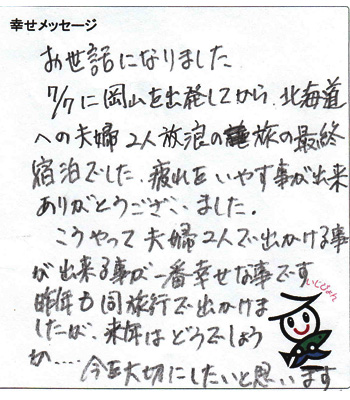 幸せメッセージ
お世話になりました
7/7に岡山を出発してから、北海道
への夫婦2人放浪の旅の最終
宿泊でした。疲れをいやす事が出来
ありがとうございました。
こうやって夫婦2人で出かける事
が出来る事が一番幸せな事です
昨年も同旅行で出かけま
したが、来年はどうでしょう
か‥‥ 今を大切にしたいと思います